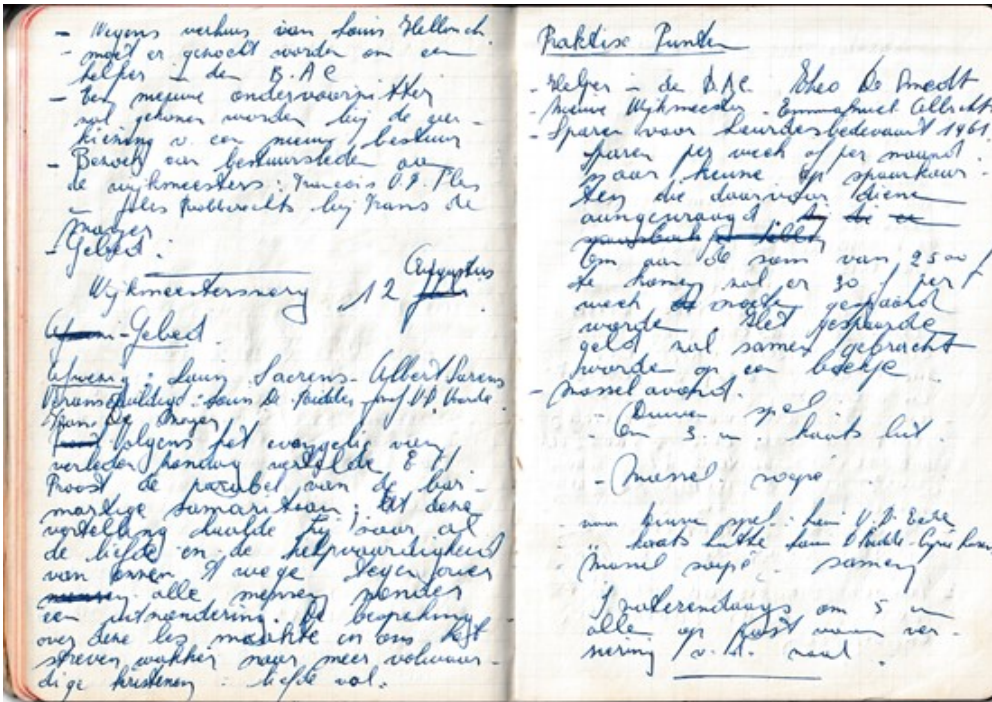 - Wegens verhuis van Louis Hellinch.
- moet er gezocht worden om een
helper in den B.A.C
- Een nieuwe ondervoorzitter
zal gekozen worden bij de ver-
kiezing v. een nieuw bestuur
- Bezoek der bestuursleden aan
de wijkmeesters: François V.D. Plas
Jules Robberechts bij Frans de
Moyer
- Gebed.
Wijkmeesters 12 Augustus
- Gebed.
Afwezig: Louis Saerens - Albert Sarens
Verontschuldigd: Louis De Ridder - Jozef V.D.
Frans De Moyer
Volgens het evangelie van
verleden zondag vertelde E.H.
Proost de parabel van de bar-
martige Samaritaan; uit deze
vertelling haalde hij naar al
de liefde en de hulpvaardigheid
van onzen wege tegenover
alle mensen zonder
een uitzondering. De bespreking
over deze les maakte in ons het
streven wakker naar meer volwaar-
dige kristenen: liefde vol.
Praktise Punten
- Helper in de B.A.C. Theo De Smedt
- Nieuwe Wijkmeester - Emmanuel Albrecht
- Sparen voor Lourdesbedevaart 1961
sparen per week of per maand.
naar keuze op spaarkaar-
ten die daarvoor dienen
aangevraagd.
Om aan de som van 2500 f
te komen zal er 30 f per
week moeten gespaard
worden. Het gespaarde
geld zal samen gebracht
worden op een boekje
- Mosselavond.
- Duiven spel.
- Om 3 u kaats hut.
- Mossel. soupé
- voor duiven spel: Louis V.D.
- " kaats hutte Louis D Ridder -
Mossel soupé. samen
's zaterdaags om 5 u
allen op post voor ver-
siering v.d. zaal.